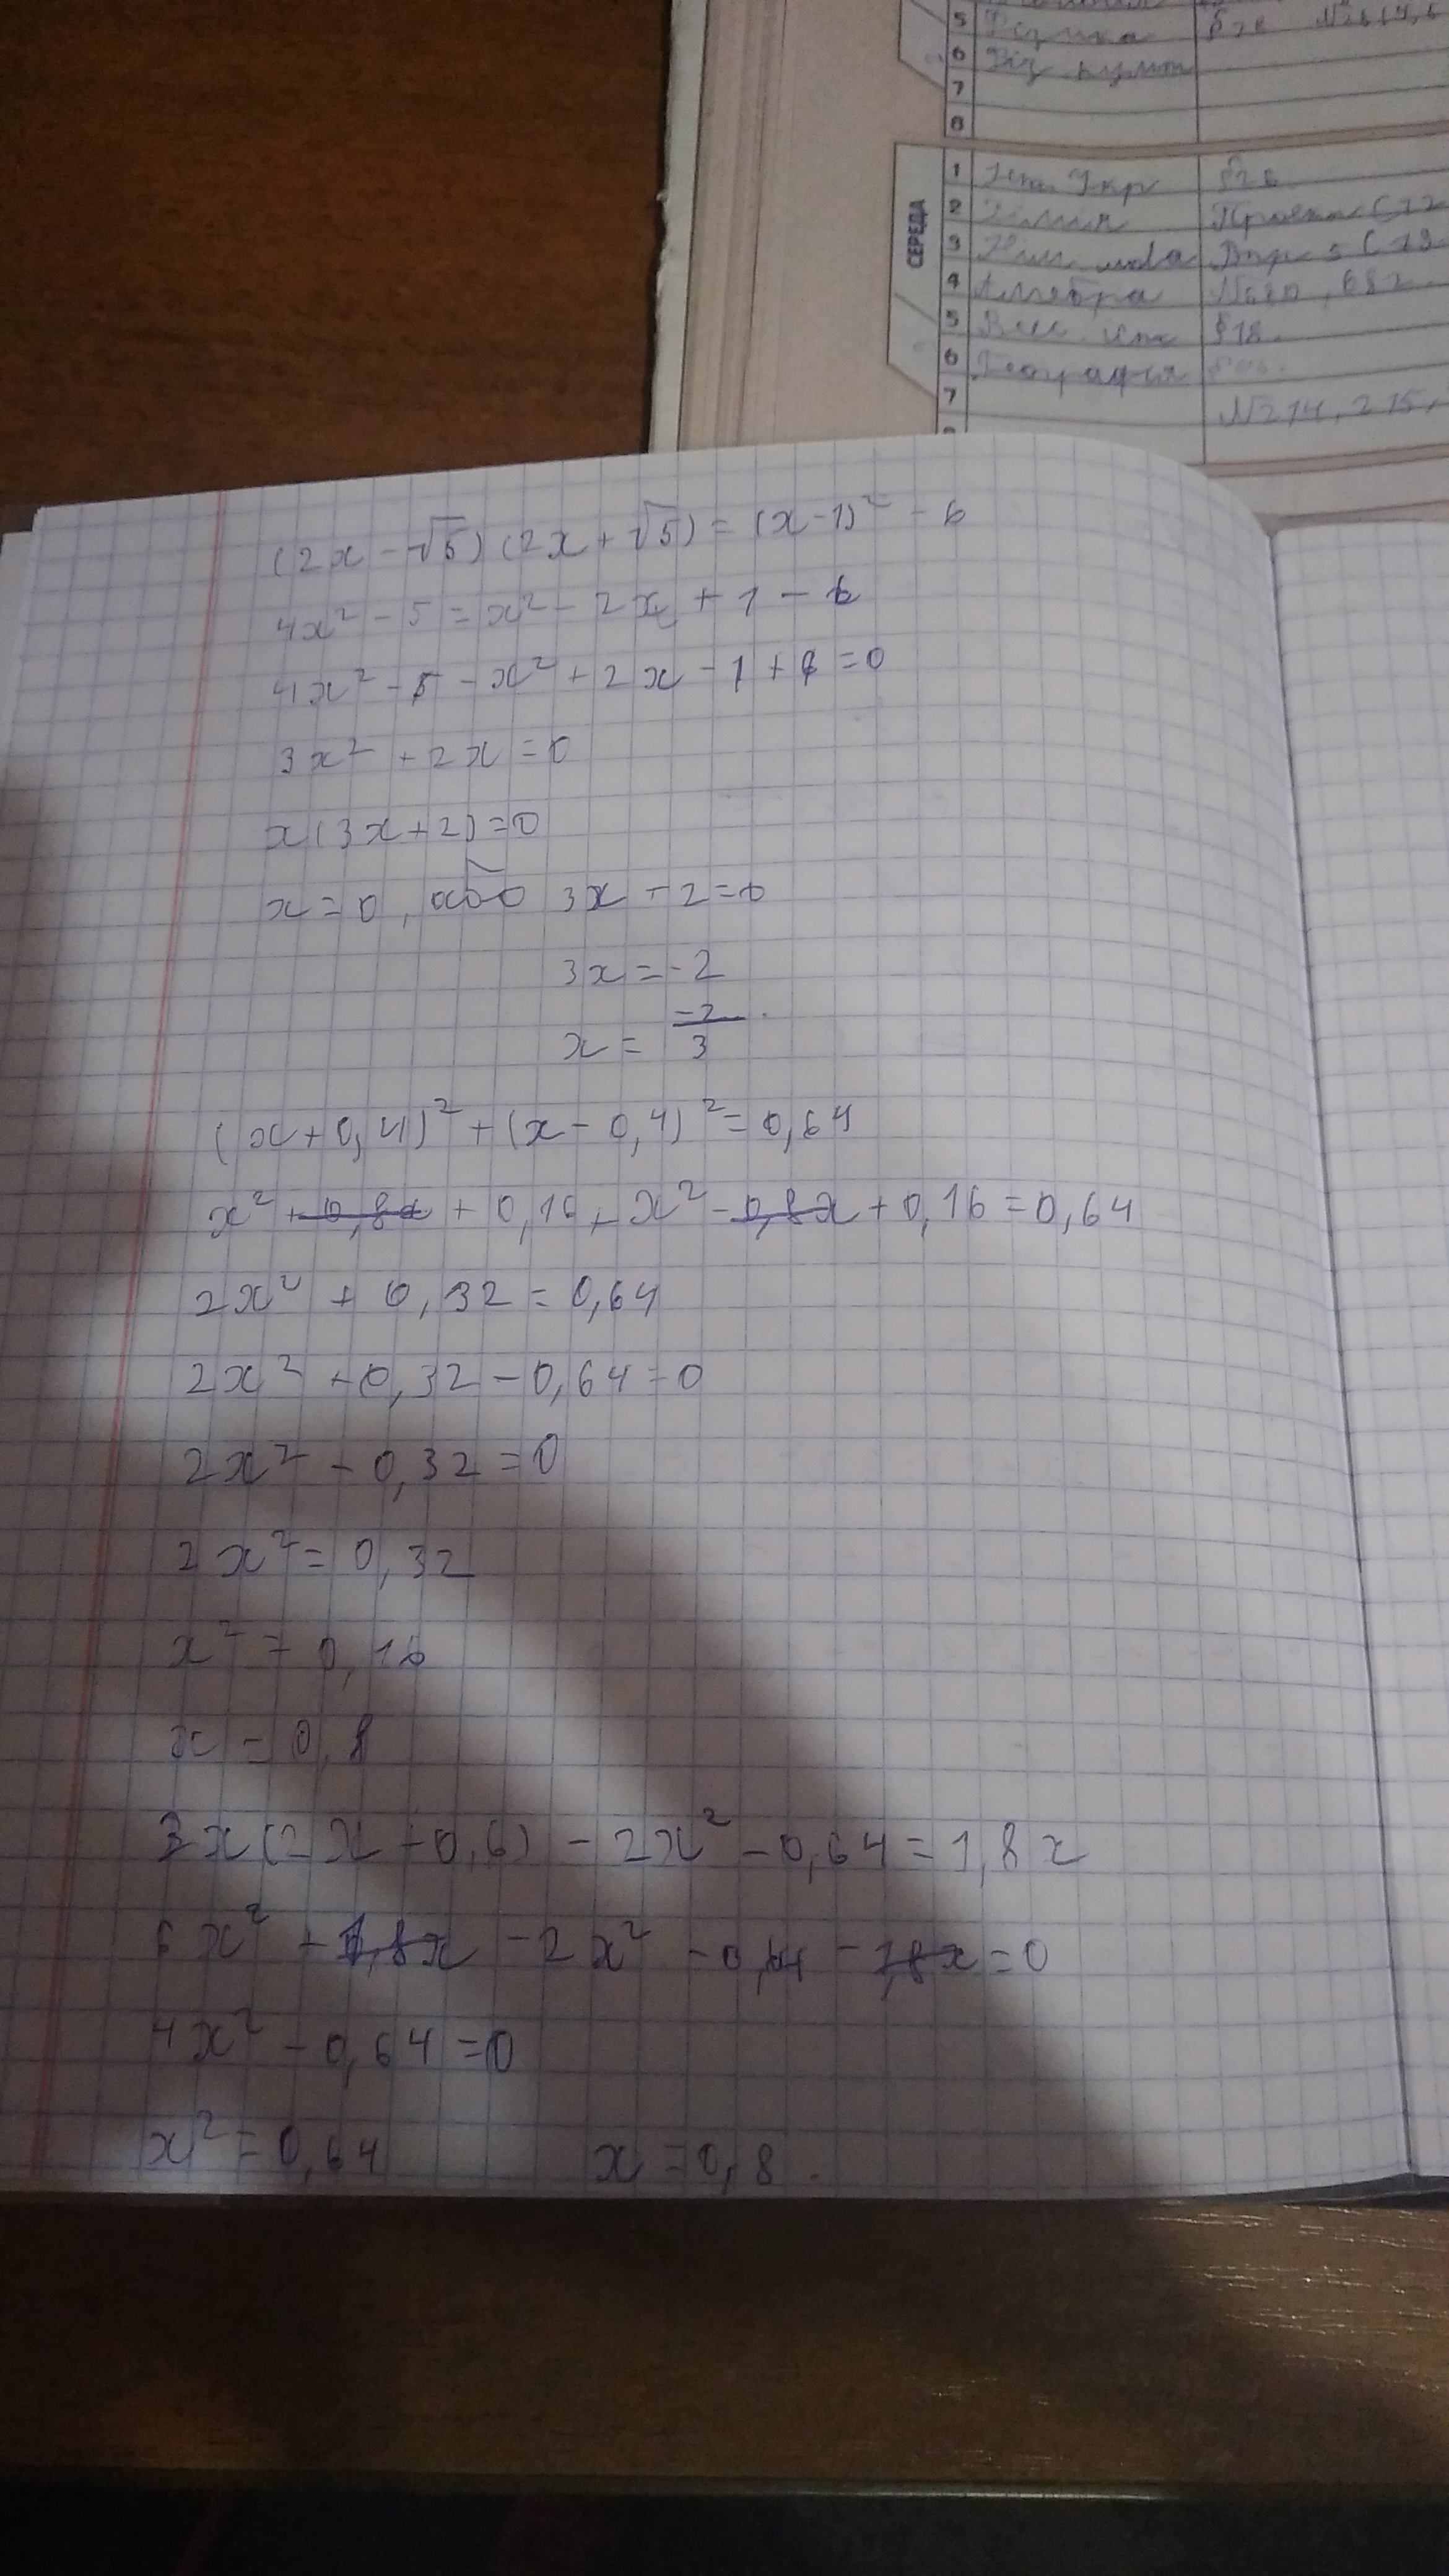 5 Фізика
6 Фіз. культ
7
8
СЕРЕДА
1 Іст. Укр
2 Хімія
3 мова Впр 5 С 19
4 Алгебра №680, 682
5 Все. §18.
6 Географія
7 №214, 215,
(2x - √5)(2x + √5) = (x - 1)² - 6
4x² - 5 = x² - 2x + 1 - 6
4x² - 5 - x² + 2x - 1 + 6 = 0
3x² + 2x = 0
x(3x + 2) = 0
x = 0, або 3x + 2 = 0
3x = -2
x = -2/3
(x + 0,4)² + (x - 0,4)² = 0,64
x² + 0,8x + 0,16 + x² - 0,8x + 0,16 = 0,64
2x² + 0,32 = 0,64
2x² + 0,32 - 0,64 = 0
2x² - 0,32 = 0
2x² = 0,32
x² = 0,16
x = 0,8
3x(2x + 0,6) - 2x² - 0,64 = 1,8x
6x² + 1,8x - 2x² - 0,64 - 1,8x = 0
4x² - 0,64 = 0
x² = 0,64 x = 0,8.